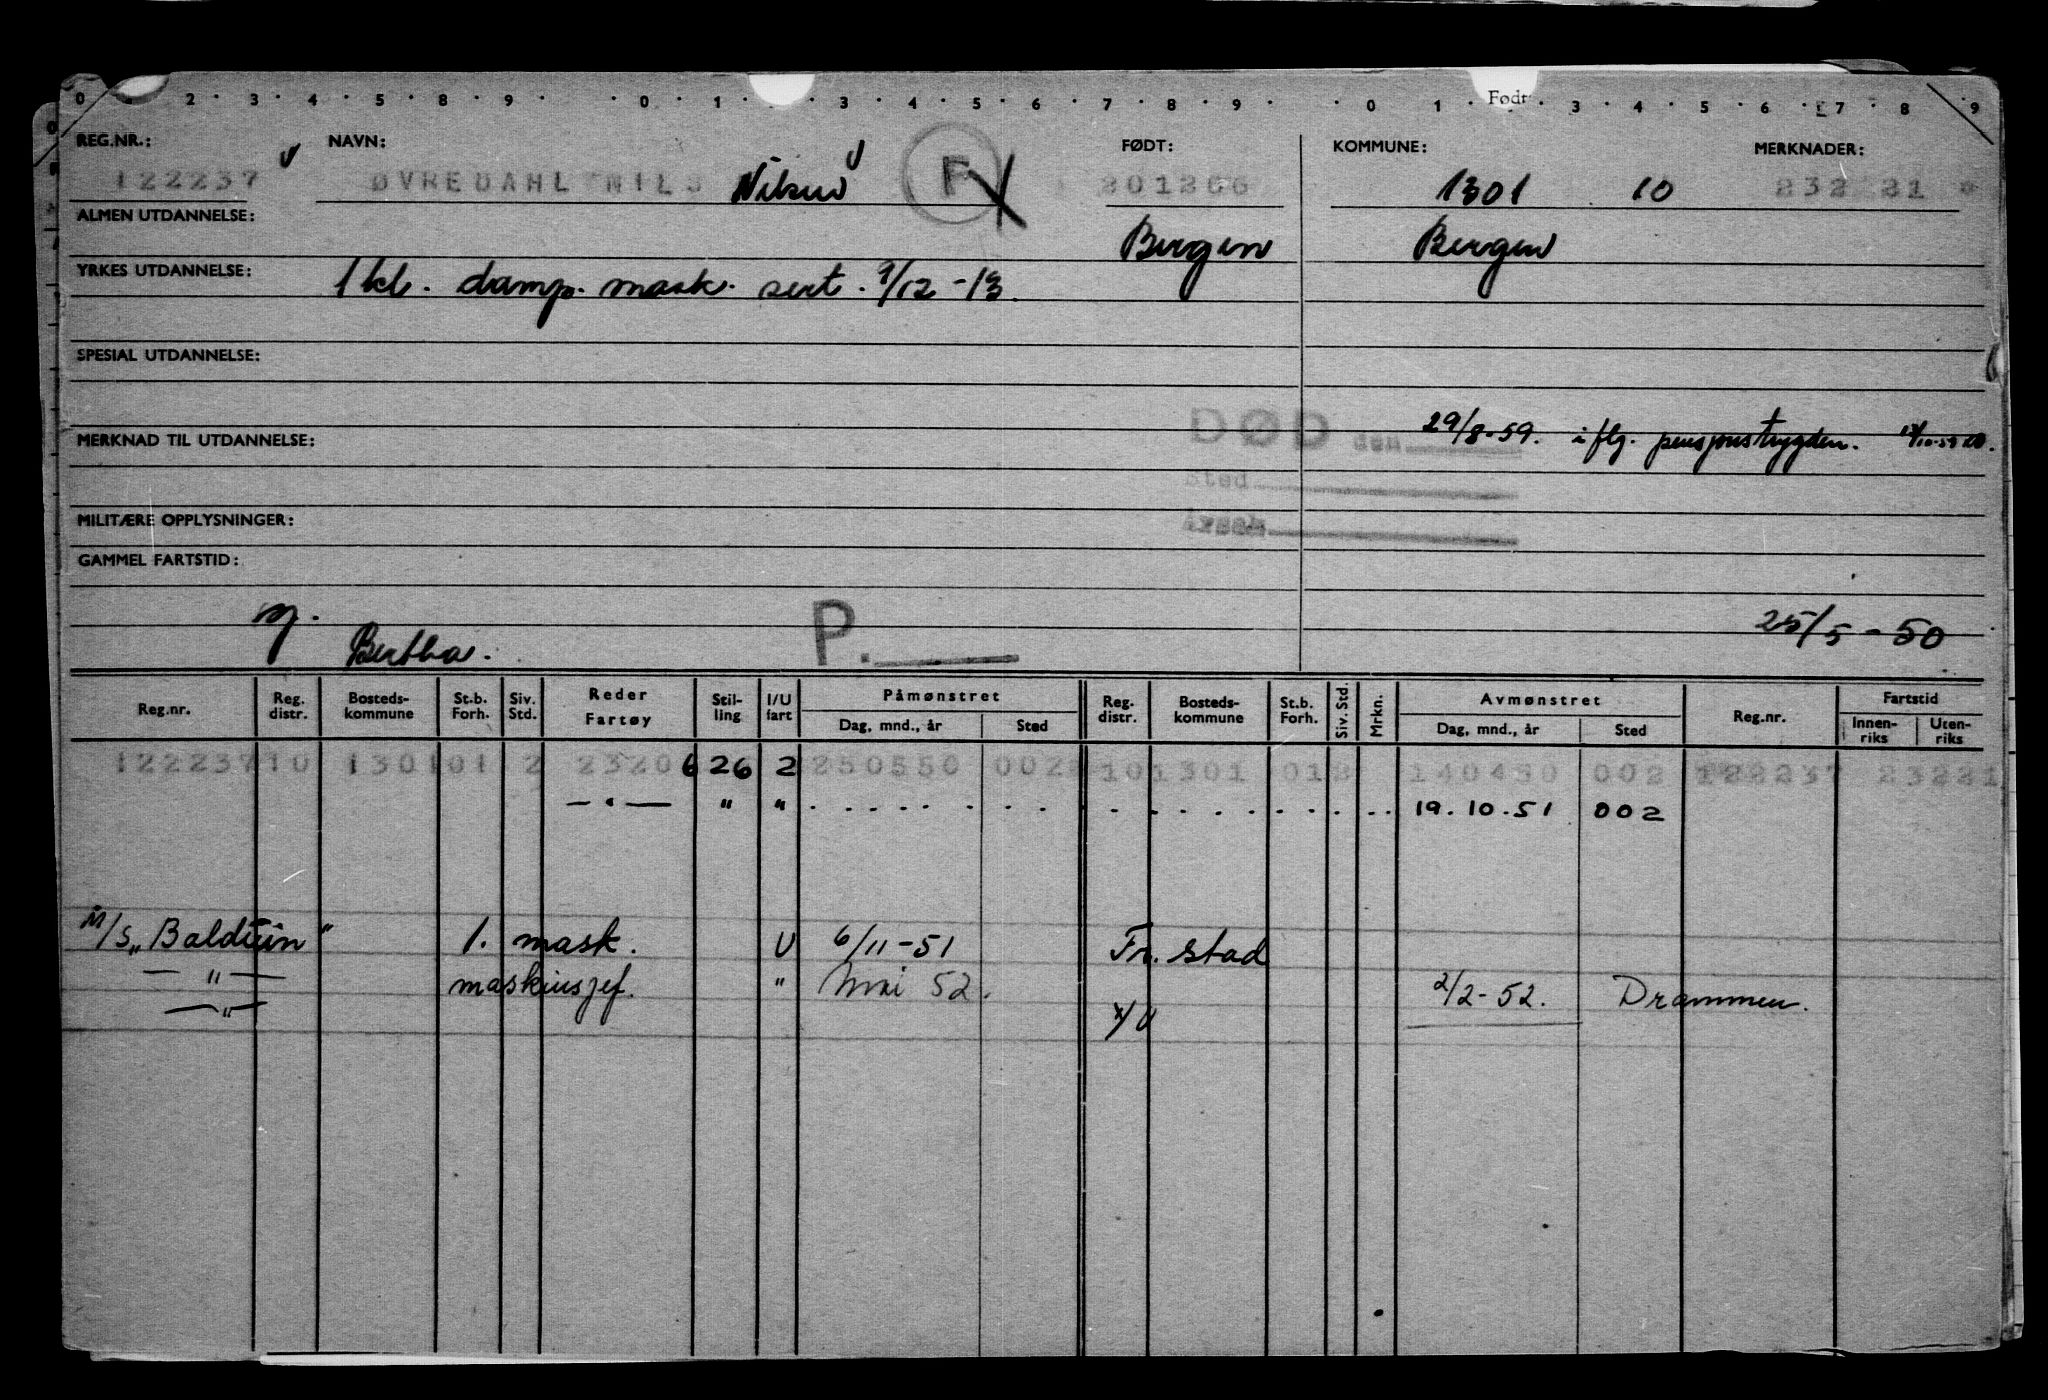 0 2 3 4 5 8 9 0 1 3 4 5 6 7 8 9 0 1 Født 3 4 5 6 7 8 9
REG.NR.: NAVN: FØDT: KOMMUNE: MERKNADER:
122237 ØVREDAHL NILS F 201266 1301 10 232 21
ALMEN UTDANNELSE: Bergen Bergen
YRKES UTDANNELSE: 1 kl. damp. mask. sert. 9/12 - 13.
SPESIAL UTDANNELSE:
MERKNAD TIL UTDANNELSE: DØD den 29/8-59. iflg. pensjonstrygden.
Sted
Årsak
MILITÆRE OPPLYSNINGER:
GAMMEL FARTSTID:
g. Bertha. P. 25/5 - 50
Reg.nr. Reg. distr. Bosteds- kommune St.b. Forh. Siv. Std. Reder Fartøy Stil- ling I/U fart Påmønstret Dag, mnd., år Sted Reg. distr. Bosteds- kommune St.b. Forh. Siv. Std. Mrkn. Avmønstret Dag, mnd., år Sted Reg.nr. Fartstid Innen- riks Uten- riks
122237 10 1301 01 2 2320 6 26 2 250550 002 10 1301 01 140450 002 122237 23221
— " — " " 19.10.51 002
M/S „Balduin" 1. mask. U 6/11-51 Fr. stad
— " — maskinsjef. " Mai 52. 2/2-52. Drammen.
— " —